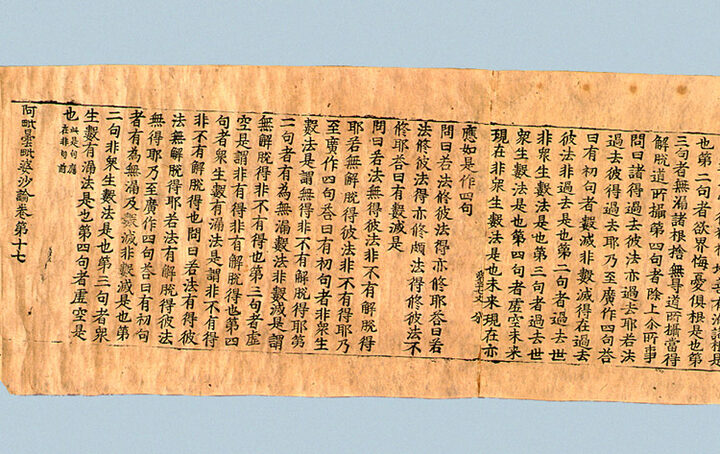 也第二句者欲界悔憂俱根是
三句者無漏諸根捨無导道所攝當得
解脫道所攝第四句者除上尒所事
問曰諸得過去彼法亦過去耶若法
過去彼得過去耶乃至廣作四句荅
曰有初句者數滅非數滅得在過去
彼法非過去是也第二句者過去世
非衆生數法是也第三句者過去世
衆生數法是也第四句者虛空未來
現在非衆生數法是也未來現在亦
應如是作四句
問曰若法修彼法得亦修耶荅曰若
法修彼法得亦修頗法得修彼法不
修耶荅曰有數滅是
問曰若法無得彼法非不有解脫得
耶若無解脫得彼法非不有得耶乃
至廣作四句荅曰有初句者非衆生
數法是謂無得非不有解脫得耶第
二句者有為無漏數法非數滅是謂
無解脫得非不有得也第三句者虛
空是謂非有得非有解脫得也第四
句者衆生數有漏法是謂非不有得
非不有解脫得也問曰若法有得彼
法無解脫得耶若法有解脫得彼法
無得耶乃至廣作四句荅曰有初句
者有為無漏及數滅非數滅是也第
二句非衆生數法是也第三句者衆
生數有漏法是也第四句者虛空是
也此是句應在非句前
阿毗曇毗婆沙論卷第十七